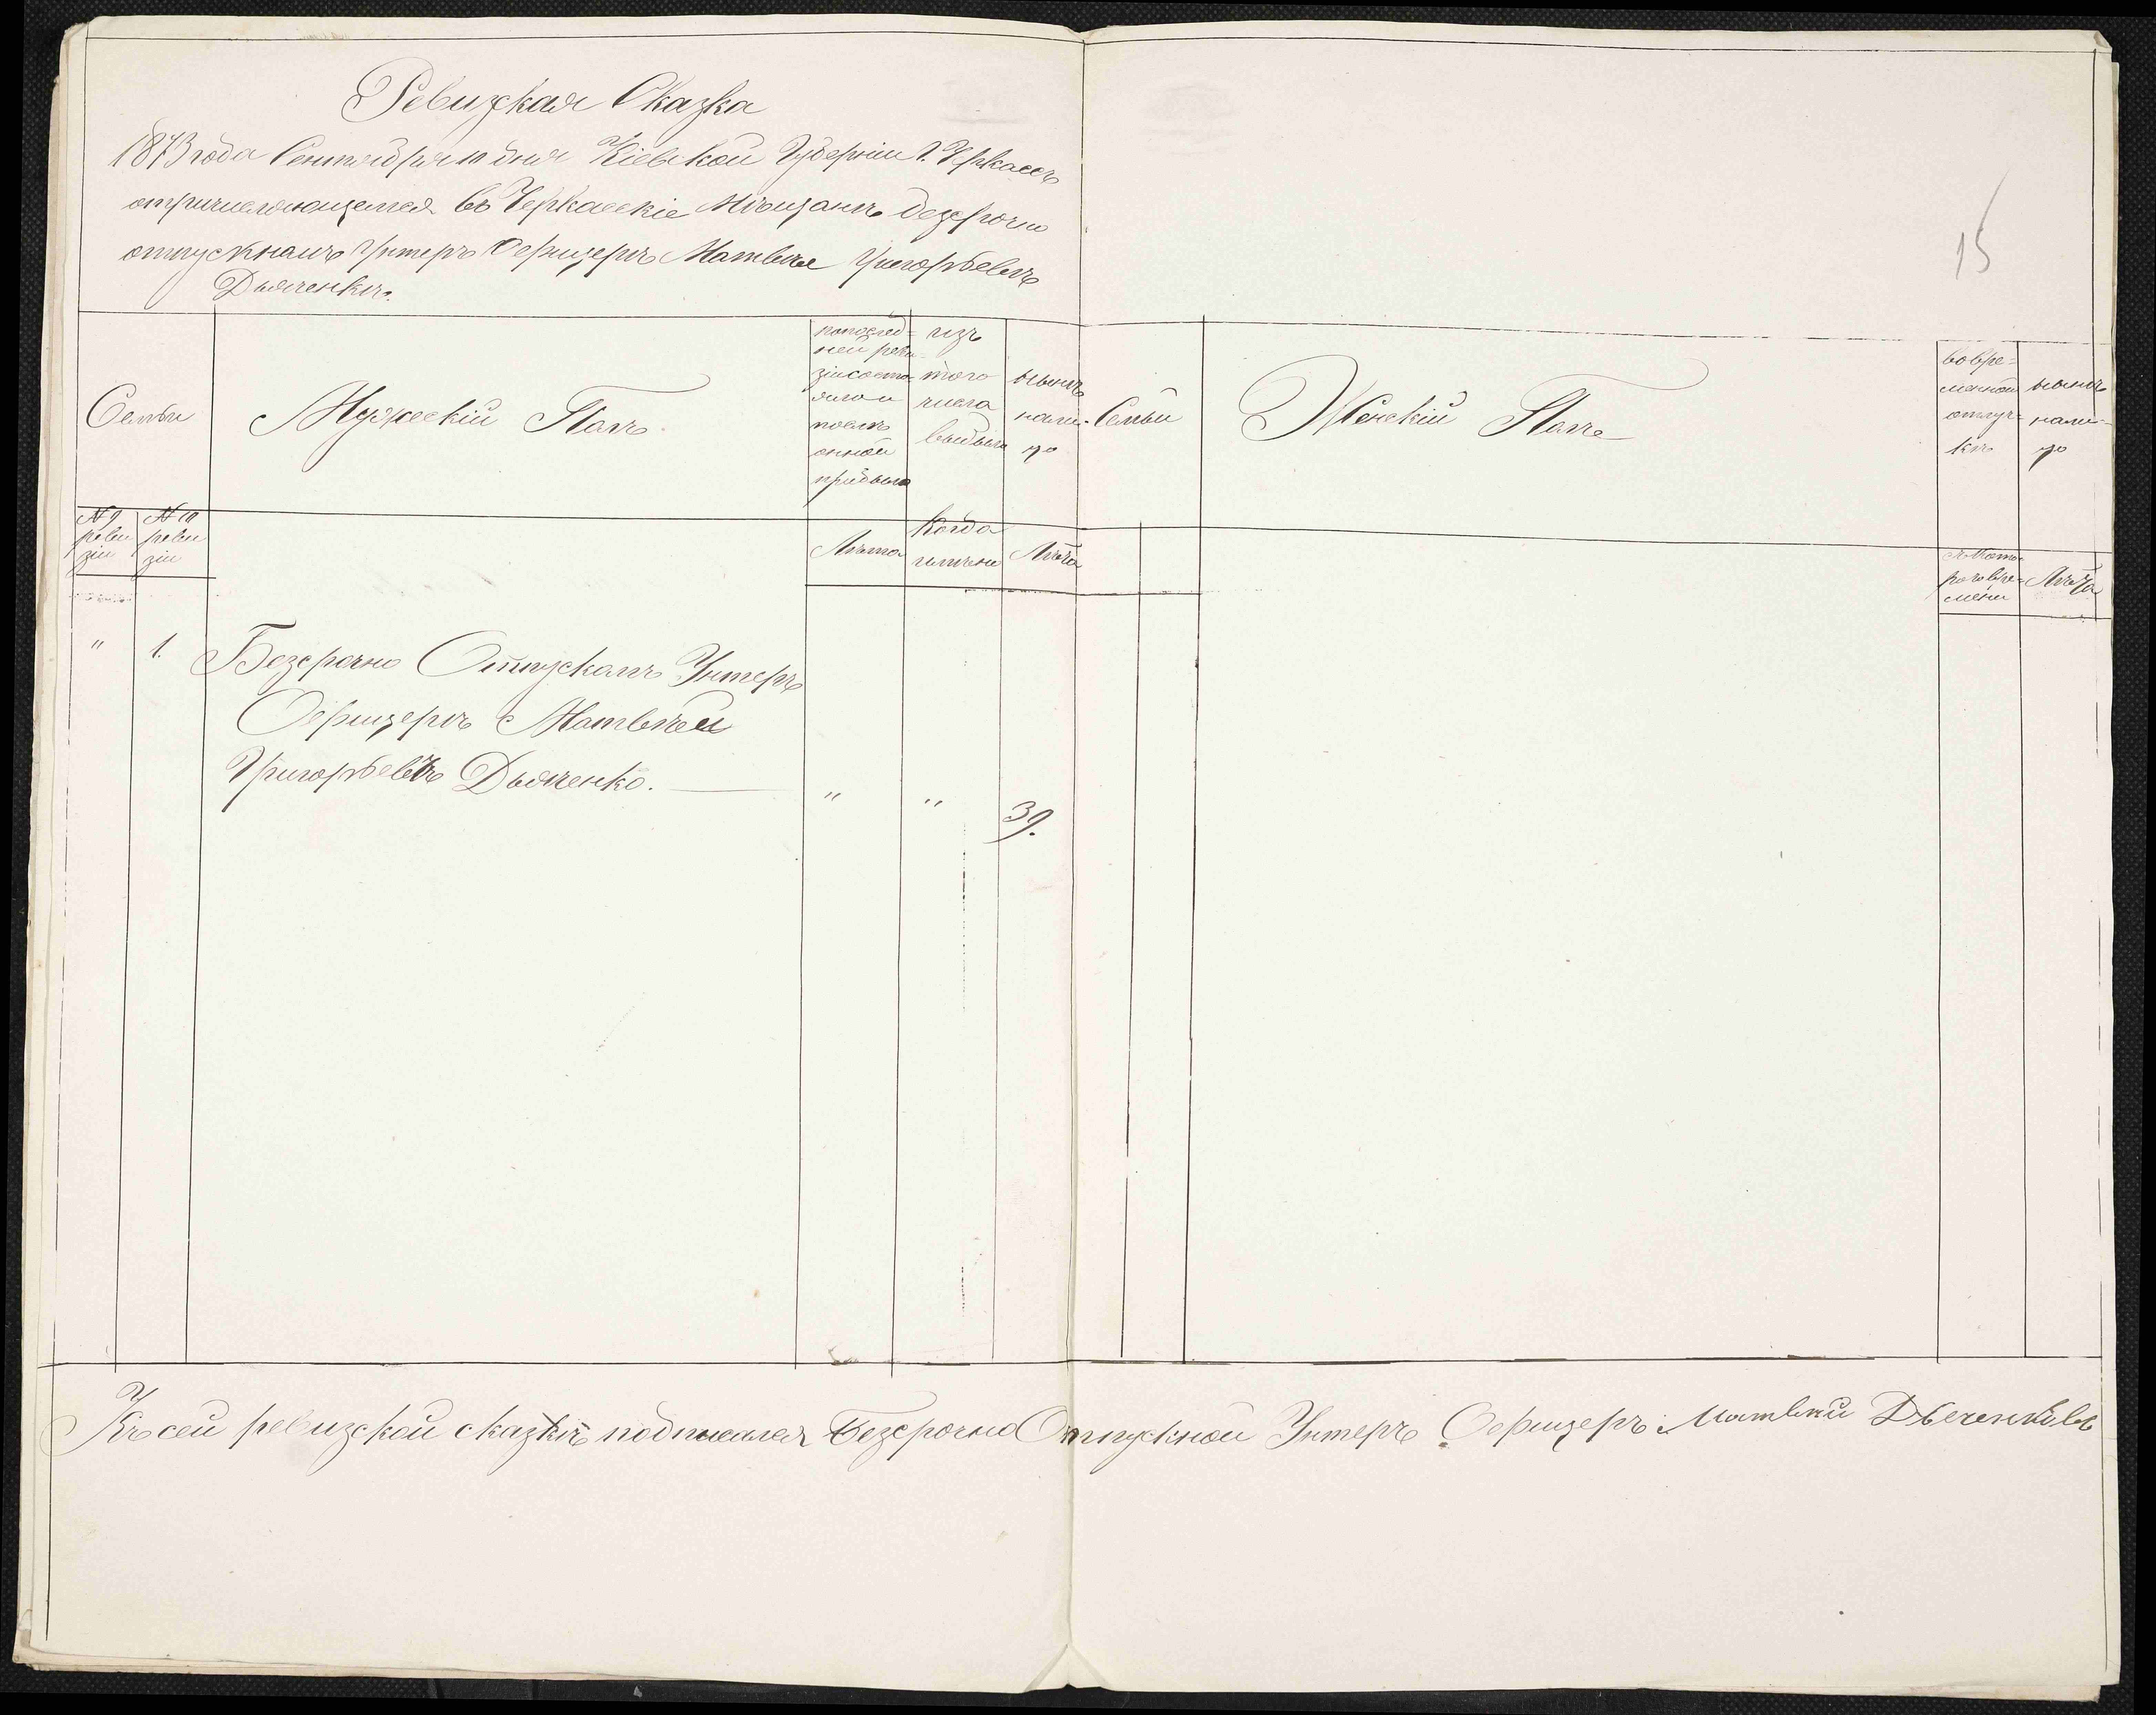 Ревизская Сказка
1873 года Сентября 10 дня Кіевской Губерніи Г. Черкассъ
о причисляющемся въ Черкаскіе Мѣщанѣ безсрочно
отпускномъ Унтеръ Офицерѣ Матвѣе Григорьевѣ
Дьяченкѣ.
15
Семьи
Мужескій Полъ
по послед-
ней реви-
зіи состо-
яло и
послѣ
онной
прибыло
изъ
того
числа
выбыло
нынѣ
на ли-
цо
Семьи
Женскій Полъ
во вре-
менной
отлуч-
кѣ
нынѣ
на ли-
цо
№ 9
реви
зіи
№ 10
реви
зіи
Лѣта
Когда
имянно
Лѣта
съ Кото-
раго вре-
мени
Лѣта
" 1. Безсрочно Отпускной Унтеръ
Офицеръ Матвѣй
Григорьевъ Дьяченко. " " 39.
Къ сей ревизской сказкѣ подписался Безсрочно Отпускной Унтеръ Офицеръ Матвѣй